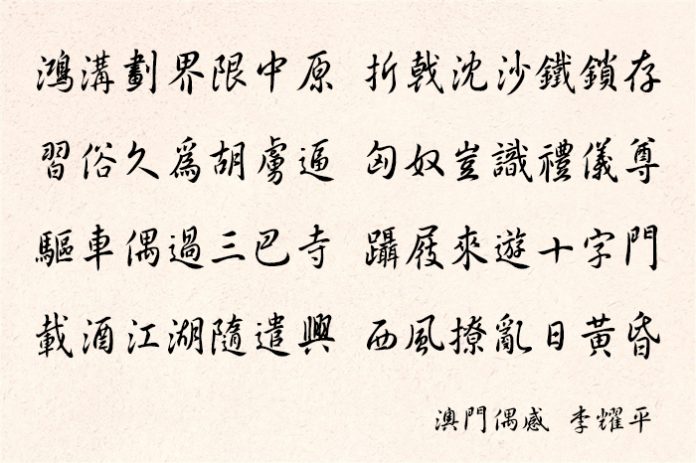 鴻溝劃界限中原 折戟沈沙鐵鎖存
習俗久爲胡虜逼 匈奴豈識禮儀尊
驅車偶過三巴寺 躡屐來遊十字門
載酒江湖隨遣興 西風撩亂日黃昏
澳門偶感 李耀平